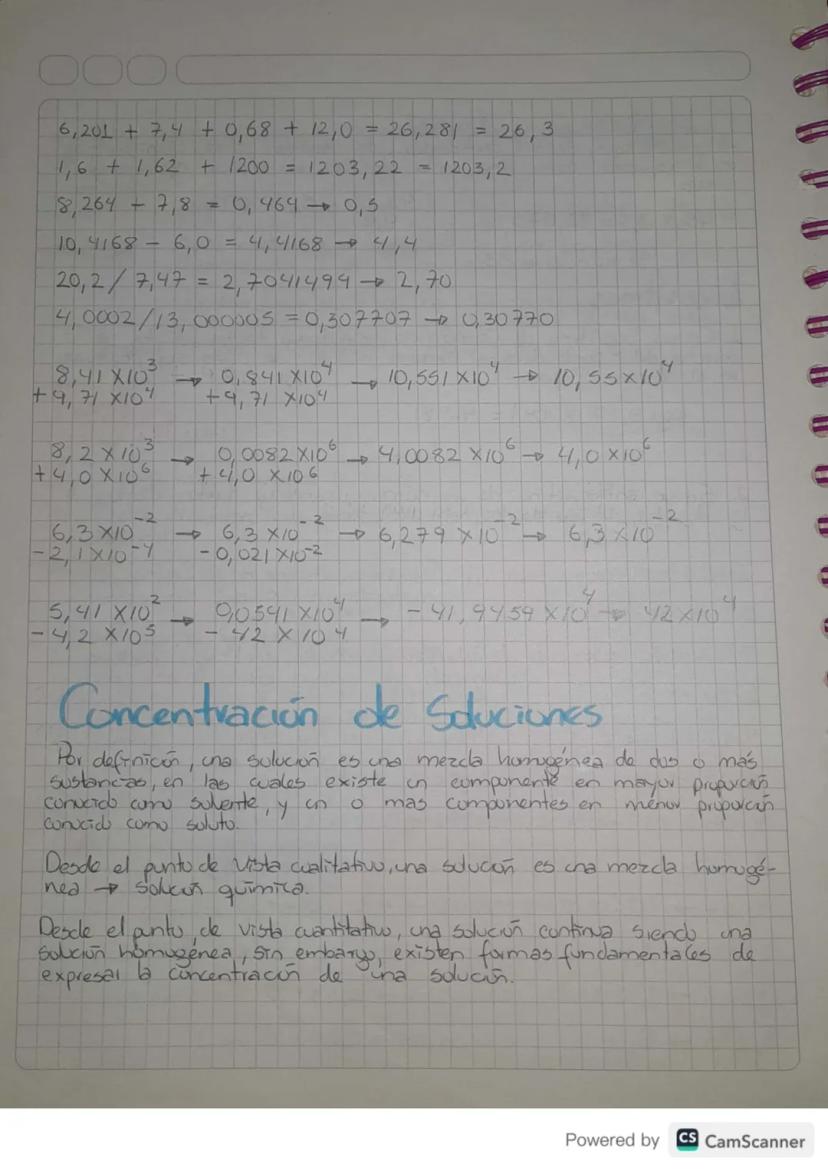 6,201 + 7,4 + 0,68 + 12,0 = 26,281 = 26,3
1,6 + 1,62 + 1200 = 1203,22 = 1203,2
8,264 - 7,8 = 0,464 → 0,5
10,4168 - 6,0 = 4,4168 → 4,4
20,2 / 7,47 = 2,7041494 → 2,70
4,0002/13,000005 = 0,307707 → 0,30770
8,41 X10³ → 0,841 X10⁴ → 10,551 X10⁴ → 10,55x10⁴
+ 9,71 X10⁴ + 9,71 X10⁴
8,2 X10³ → 0,0082 X10⁶ → 4,0082 X10⁶ → 4,0 X10⁶
+ 4,0 X10⁶ + 4,0 X10⁶
6,3 X10⁻² → 6,3 X10⁻² → 6,279 X10⁻² → 6,3 X10⁻²
- 2,1 X10⁻⁴ - 0,021 X10⁻²
5,41 X10² → 0,0541 X10⁴ → - 41,9459 X10⁴ → 42 X10⁴
- 4,2 X10⁵ - 42 X 10⁴
Concentración de Soluciones
Por definición, una solución es una mezcla homogénea de dos o más
sustancias, en las cuales existe un componente en mayor proporción
conocido como solvente, y un o mas componentes en menor proporción
conocido como soluto.
Desde el punto de vista cualitativo, una solución es una mezcla homogé-
nea → solución química.
Desde el punto de vista cuantitativo, una solución continua siendo una
solución homogénea, sin embargo, existen formas fundamentales de
expresar la concentración de una solución.
Powered by CS CamScanner